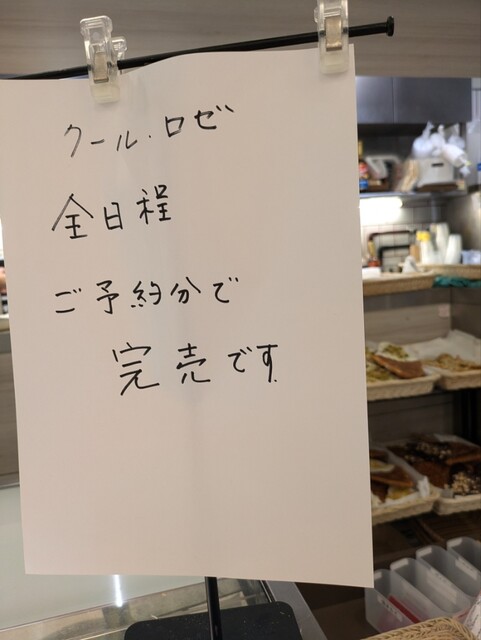 クール・ロゼ
全日程
ご予約分で
完売です